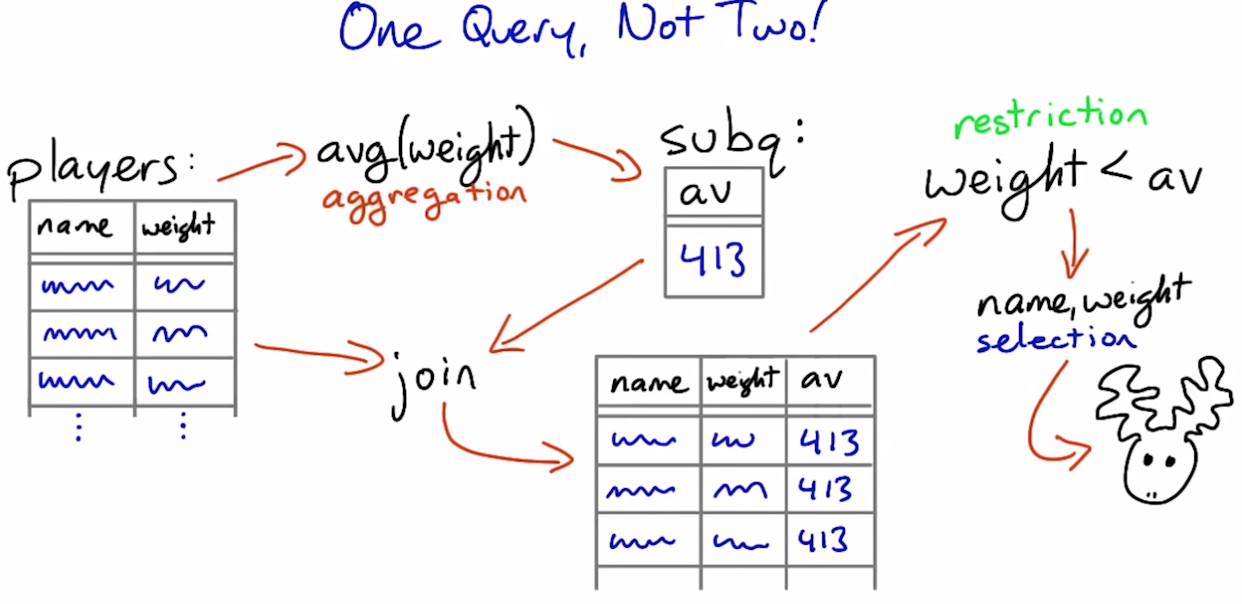 One Query, Not Two!
players:
name weight
avg(weight)
aggregation
subq:
av
413
join
name weight av
413
413
413
restriction
weight < av
name, weight
selection